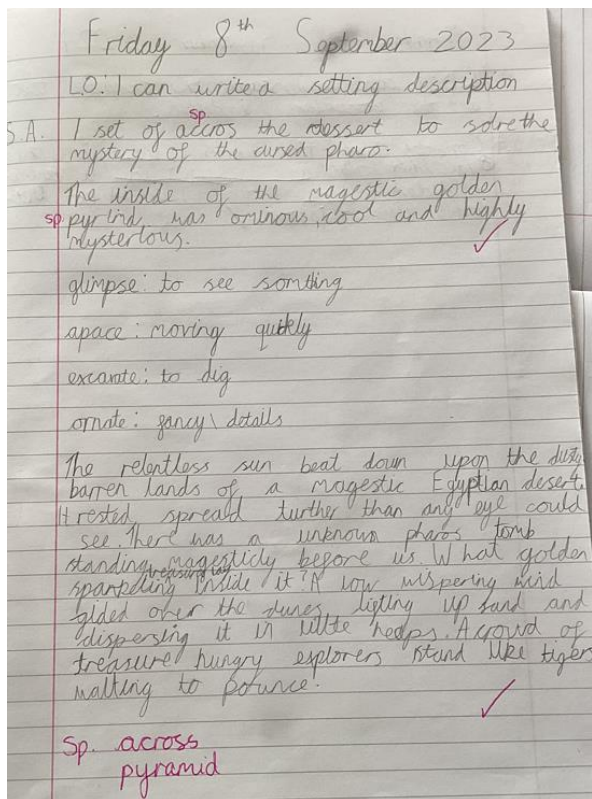 Friday 8th September 2023
L.O: I can write a setting description
SA.
sp
I set of accros the dessert to solve the
mystery of the cursed pharo.
The inside of the magestic golden
sp. was ominous, cool and highly
mysterious.
glimpse: to see somthing
apace: moving quikly
excavate: to dig
ornate: fancy\ details
The relentless sun beat down upon the dusty
barren lands of a magestic Egyptian desert.
It rested, spread further than any eye could
see. There was a unknown pharos tomb
standing magesticly before us. What golden
treasure lay
inside it? A low wispering wind
glided over the dunes, lifting up sand and
dispersing it in little heaps. A crowd of
treasure hungry explorers stand like tigers
waiting to pounce.
Sp. across
pyramid